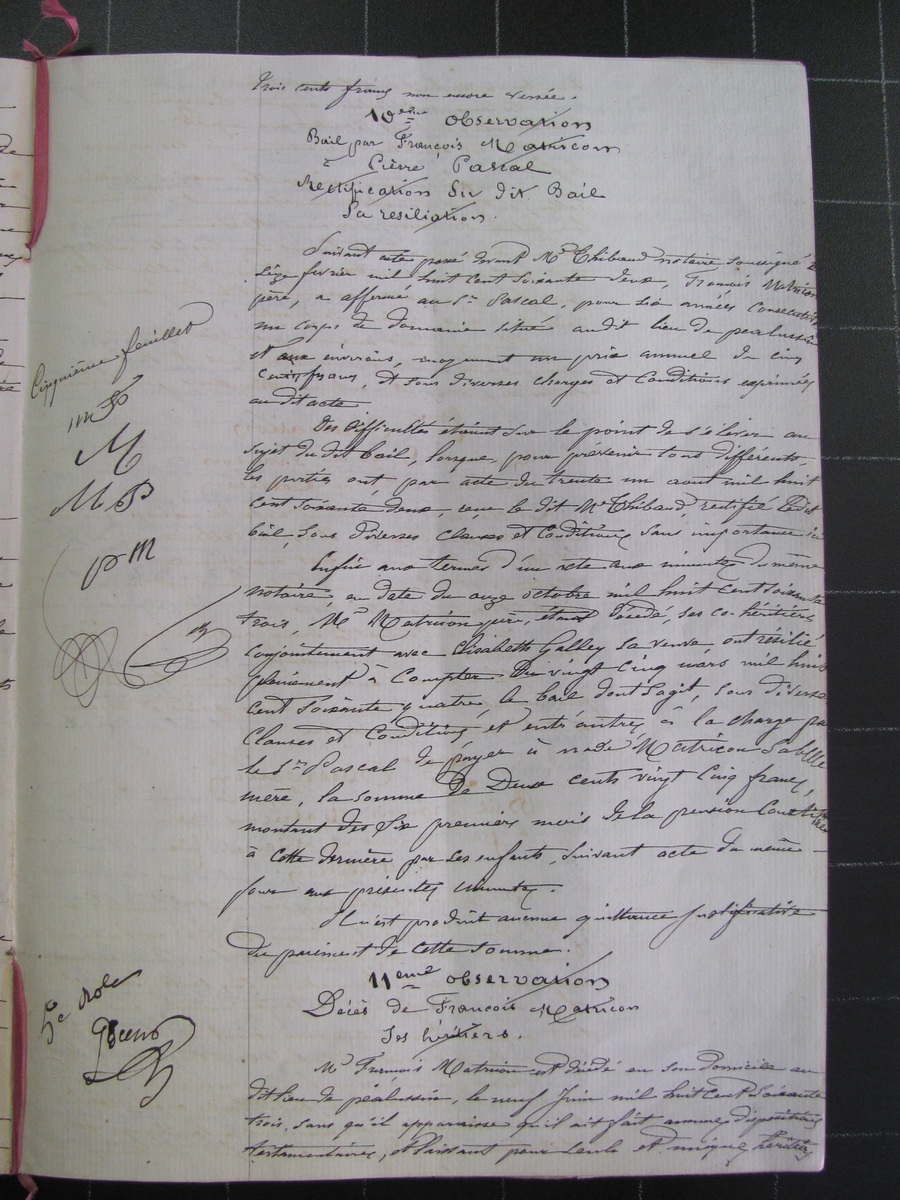 trois cents francs non encore versée.
10ème observation
Bail par François Matricon
à Pierre Pascal
Rectification du dit Bail
Sa résiliation.
Suivant acte passé devant Me Thibaud notaire soussigné le
seize février mil huit cent soixante deux, François Matricon
père, a affermé au Sr Pascal, pour six années consécutives
un corps de domaine situé au dit lieu de
et aux environs, moyennant un prix annuel de cinq
cents francs, et sous diverses charges et conditions exprimées
au dit acte
Des difficultés étaient sur le point de s'élever au
sujet du dit bail, lorsque, pour prévenir tous différents,
les parties ont par acte du trente un aout mil huit
cent soixante deux, reçu le dit Me Thibaud rectifié ledit
bail, sous diverses clauses et conditions sans importance ici
Enfin aux termes d'un acte aux minutes du même
notaire, en date du onze octobre mil huit cent soixante
trois, Mr Matricon père, étant décédé, ses co-héritiers
conjointement avec Elisabeth Galley sa veuve, ont résilié
purement à compter du vingt cinq mars mil huit
cent soixante quatre, le bail dont s'agit, sous diverses
clauses et conditions et entr'autres, à la charge par
le Sr Pascal de payer à made Matricon
mère, la somme de Deux cents vingt cinq francs,
montant des six premiers mois de la pension constituée
à cette dernière par ses enfants, suivant acte du même
jour aux présentes minutes.
Il n'est produit aucune quittance justificative
du paiement de cette somme.
11eme observation
Décès de François Matricon
Ses héritiers.
Mr François Matricon est décédé en son domicile au
dit lieu de, le neuf juin mil huit cent soixante
trois, sans qu'il apparaisse qu'il ait fait aucunes dispositions
testamentaires, et laissant pour seuls et unique héritiers
Cinquième feuillet
M
M P
P M
5e Role